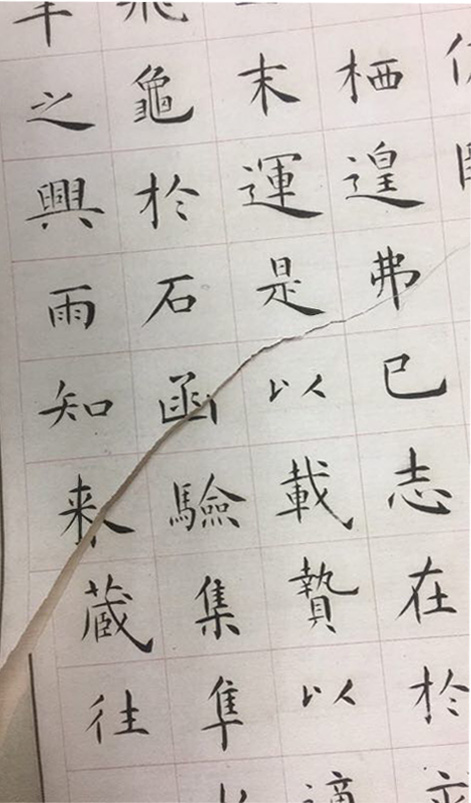 栖遑弗已志在於
末運是以載贄以適
飛龜於石函驗集隼
羊之興雨知来蔵往